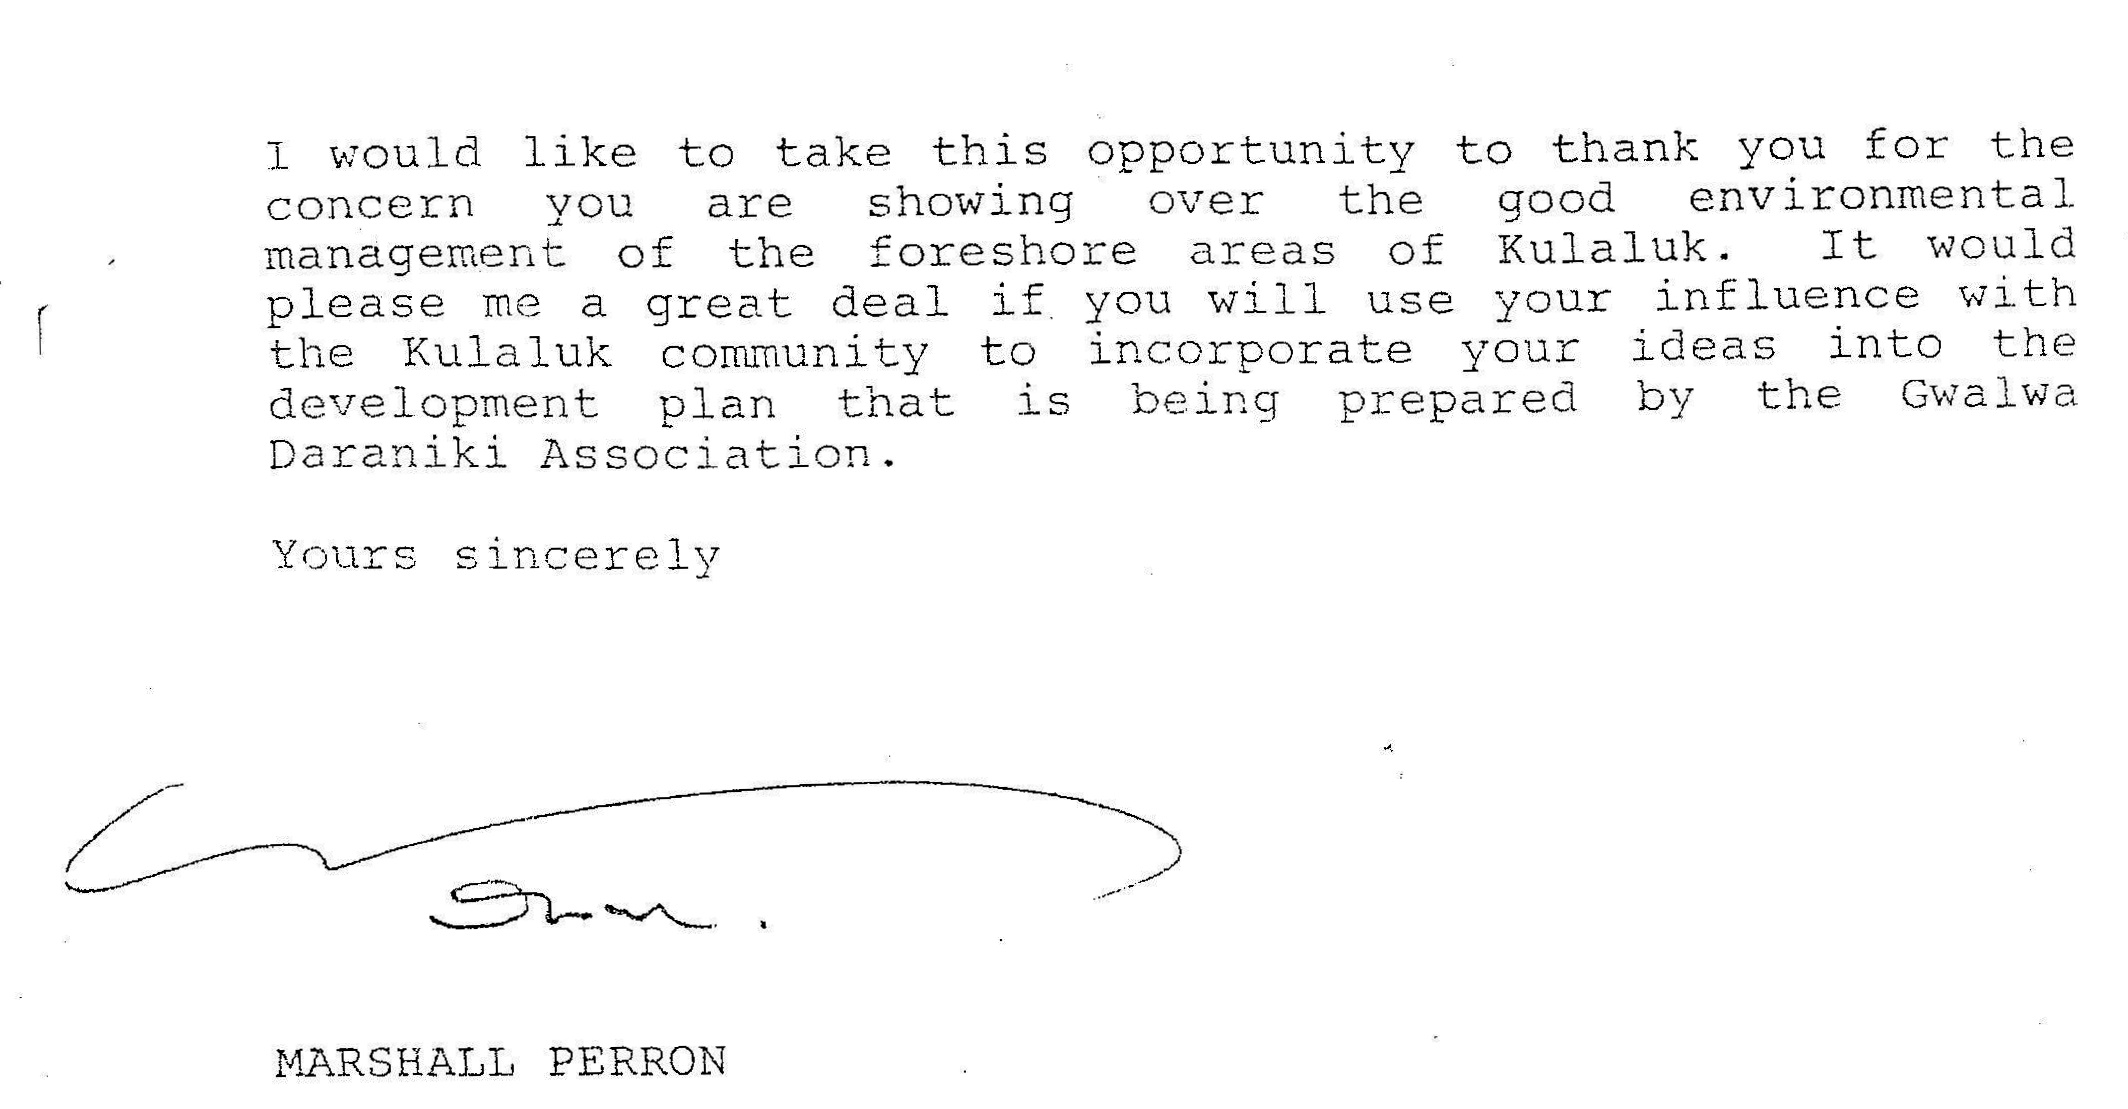 I would like to take this opportunity to thank you for the
concern you are showing over the good environmental
management of the foreshore areas of Kulaluk. It would
please me a great deal if you will use your influence with
the Kulaluk community to incorporate your ideas into the
development plan that is being prepared by the Gwalwa
Daraniki Association.
Yours sincerely
MARSHALL PERRON